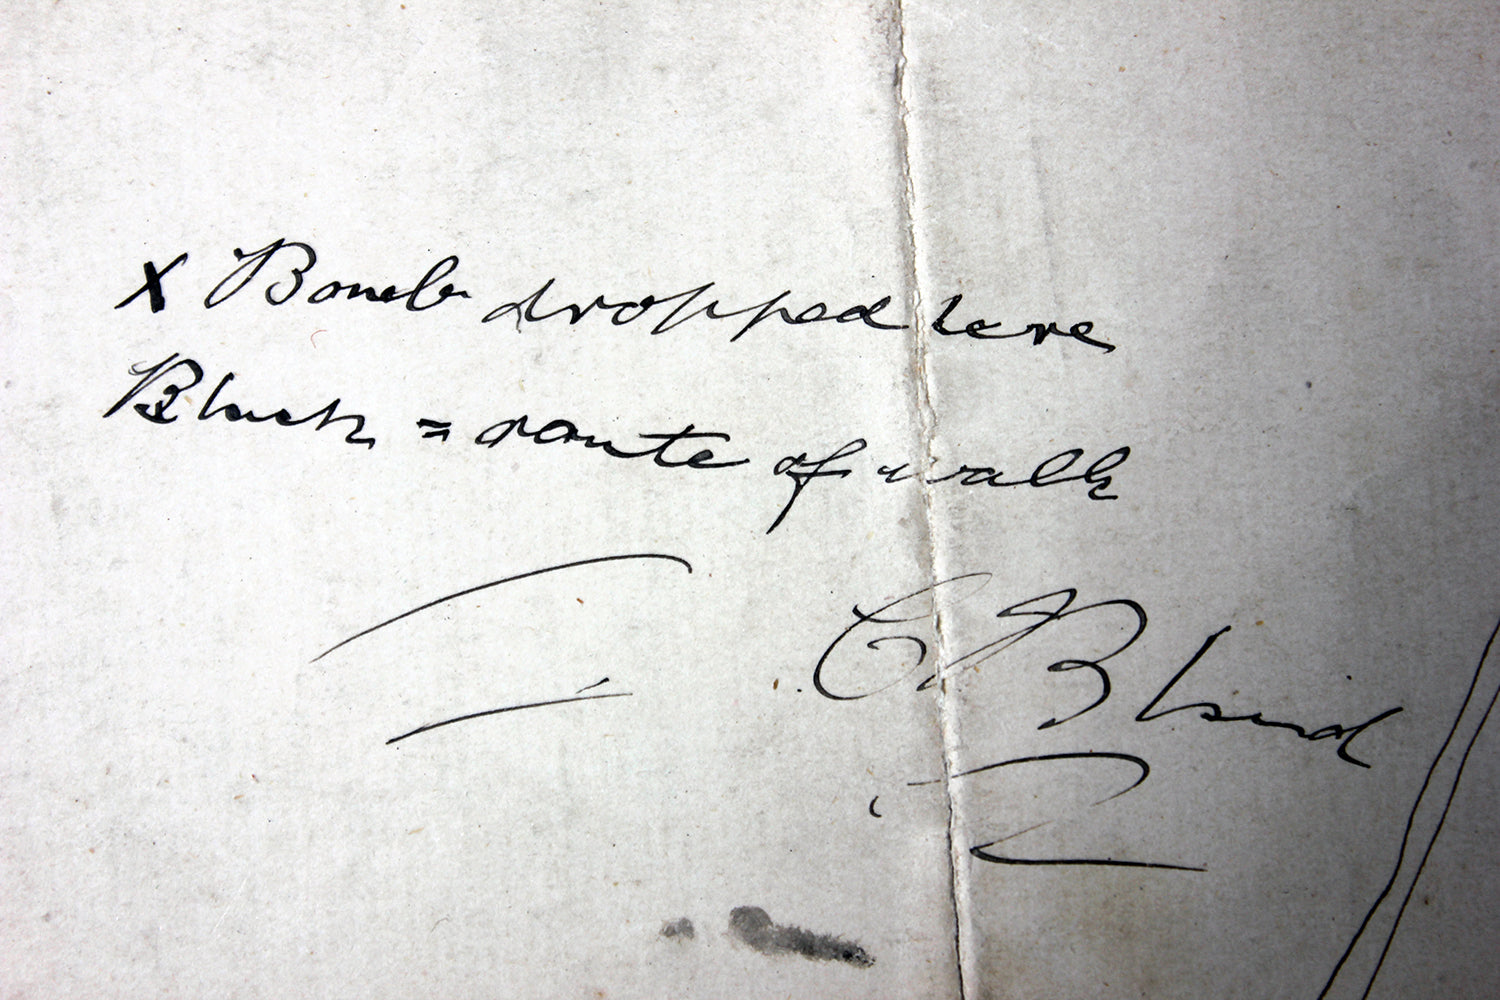 X Bomb dropped here
Black = route of walk